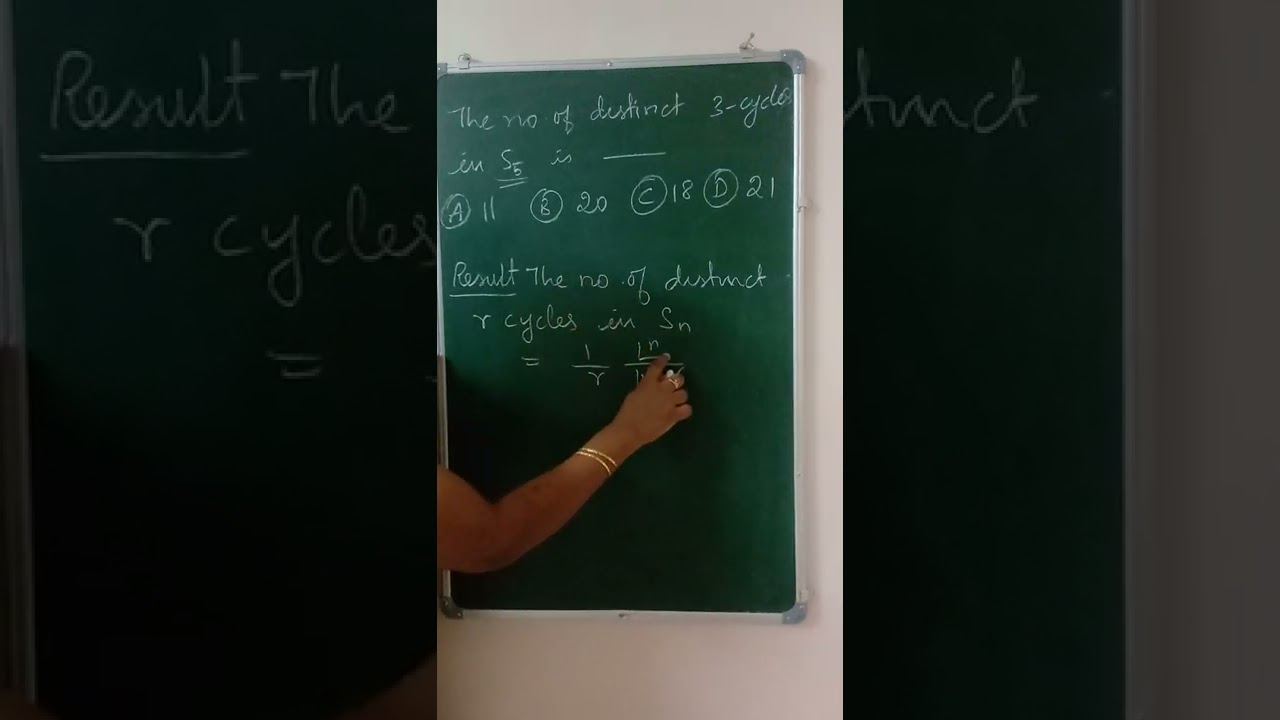 The no of distinct 3-cycles
in S5 is ___
(A) 11 (B) 20 (C) 18 (D) 21
Result The no. of distinct
r cycles in Sn
= 1/r |n